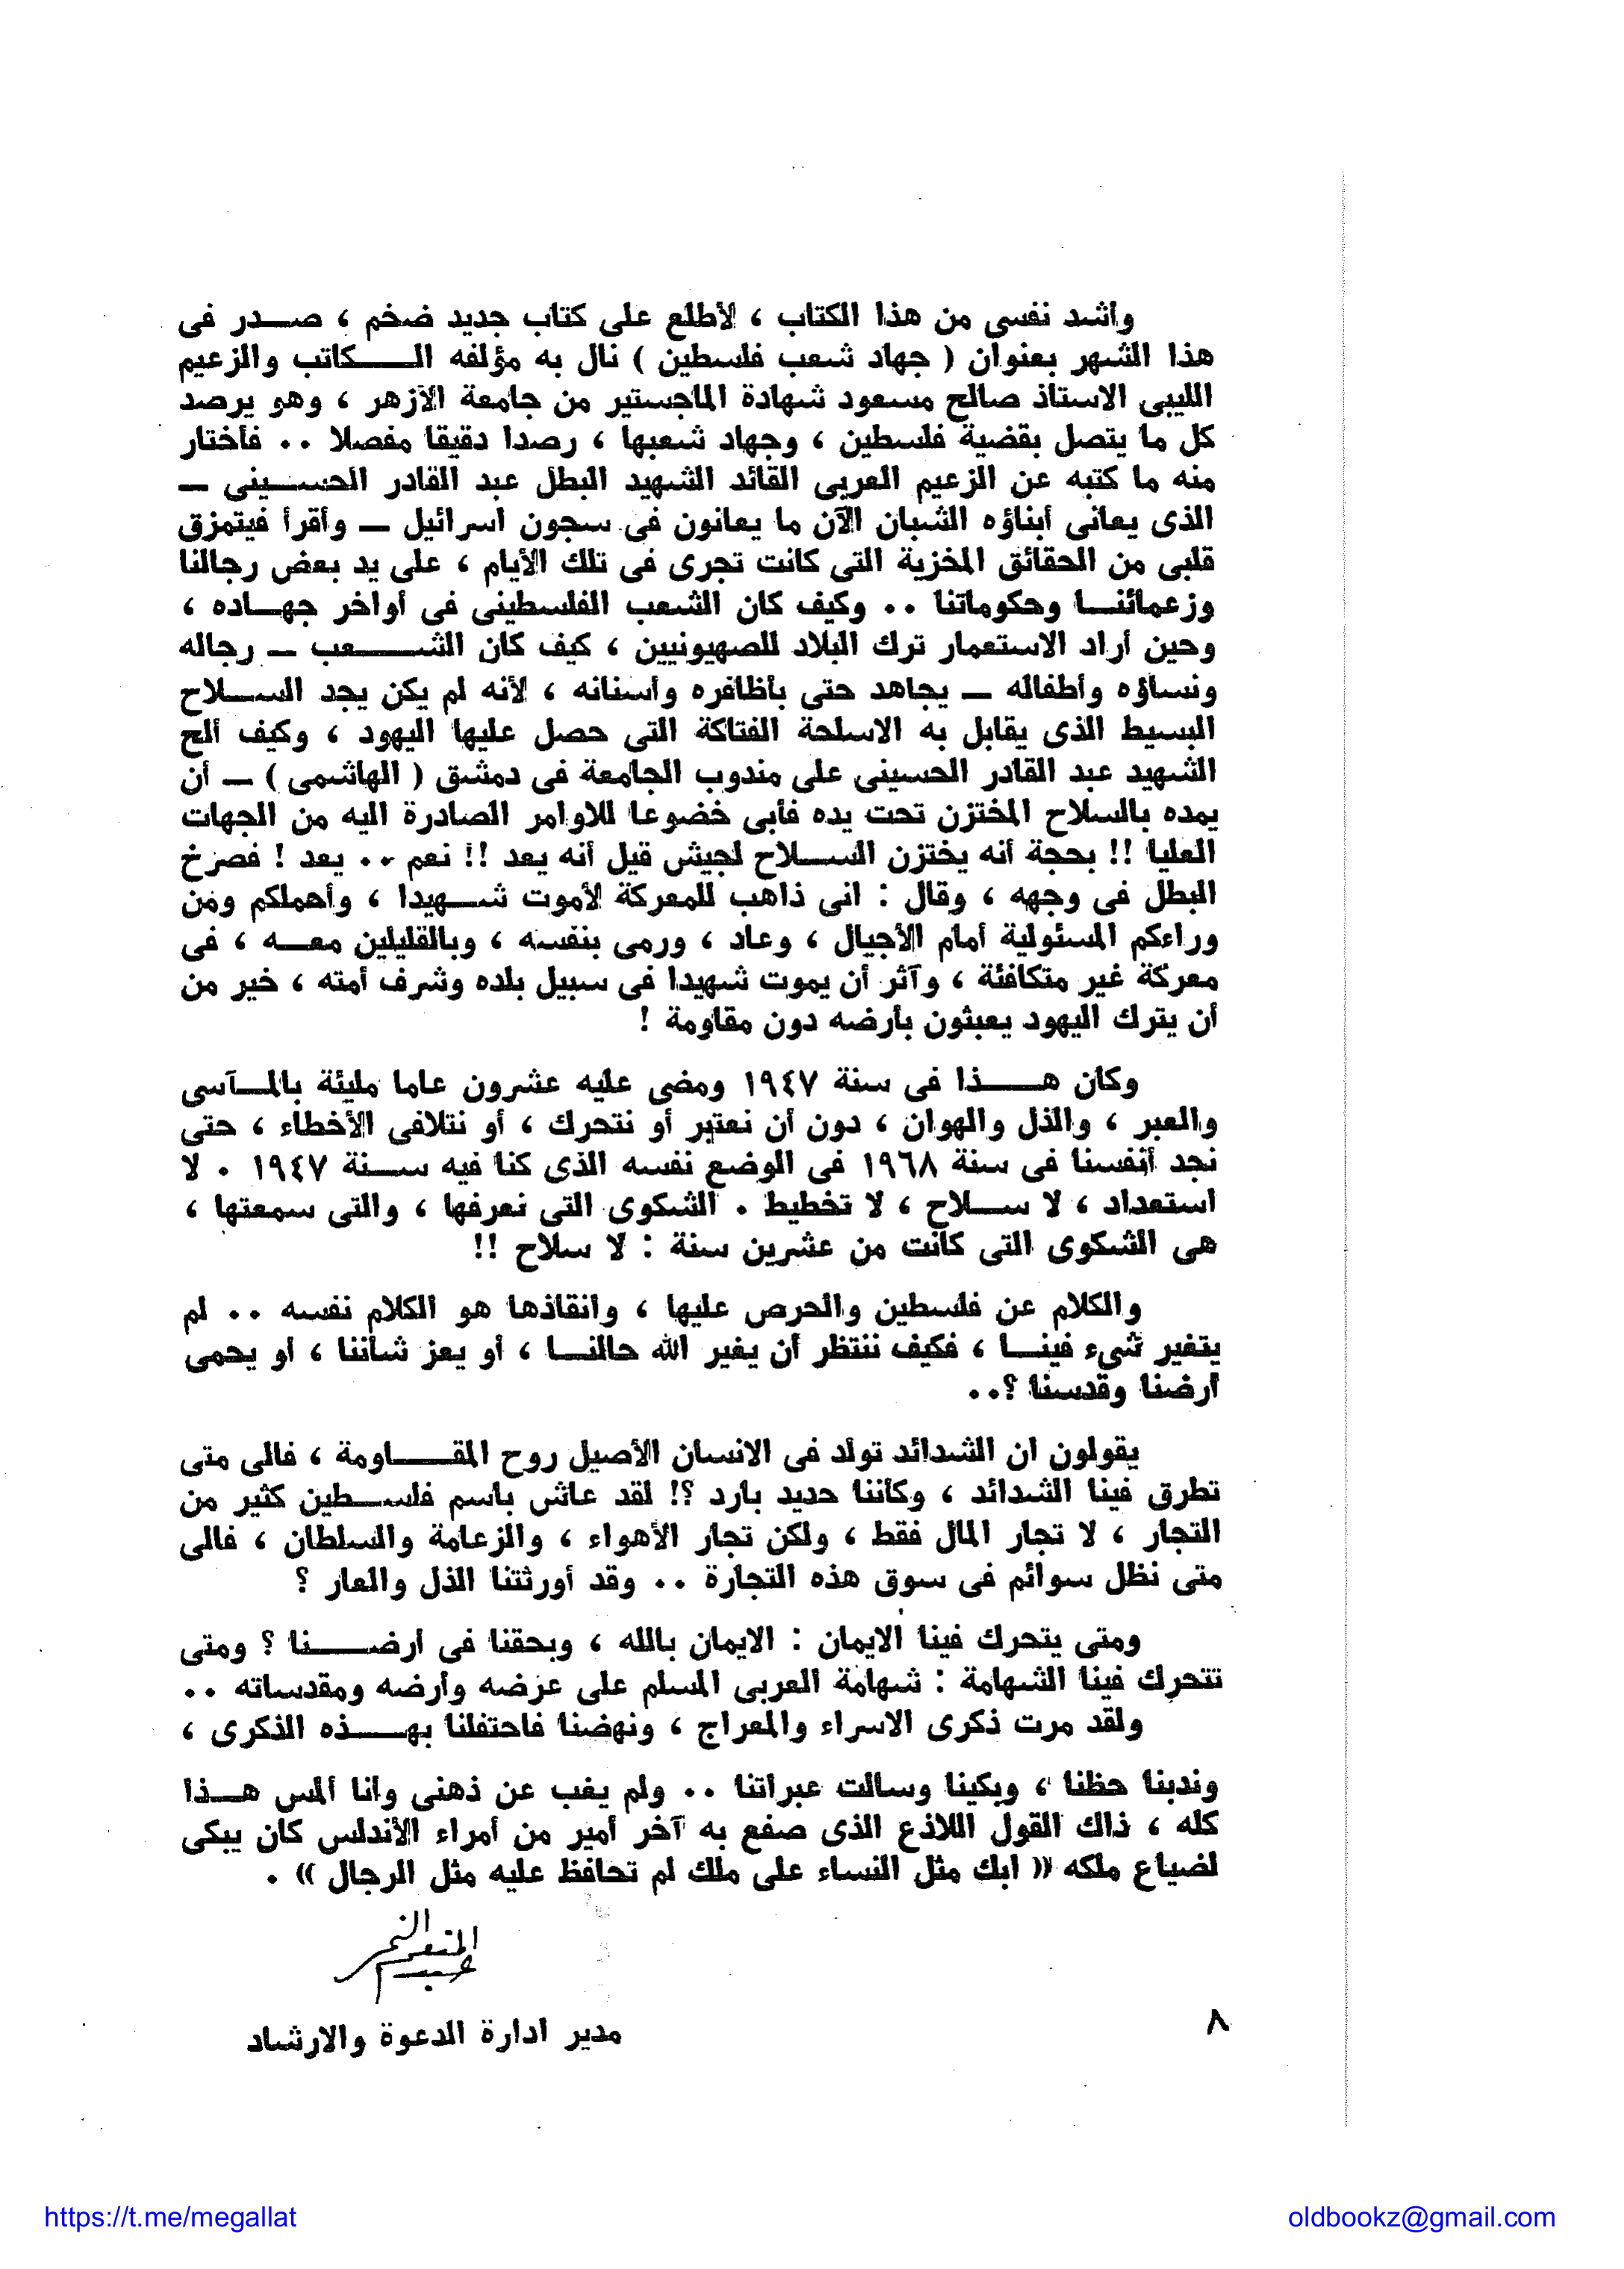 واشد نفسى من هذا الكتاب ، لأطلع على كتاب جديد ضخم ، صدر فى
هذا الشهر بعنوان ( جهاد شعب فلسطين ) نال به مؤلفه الكاتب والزعيم
الليبى الاستاذ صالح مسعود شهادة الماجستير من جامعة الأزهر ، وهو يرصد
كل ما يتصل بقضية فلسطين ، وجهاد شعبها ، رصدا دقيقا مفصلا .. فأختار
منه ما كتبه عن الزعيم العربى القائد الشهيد البطل عبد القادر الحسينى —
الذى يعانى أبناؤه الشبان الآن ما يعانون فى سجون اسرائيل — وأقرأ فيتمزق
قلبى من الحقائق المخزية التى كانت تجرى فى تلك الأيام ، على يد بعض رجالنا
وزعمائنا وحكوماتنا .. وكيف كان الشعب الفلسطينى فى أواخر جهاده ،
وحين أراد الاستعمار ترك البلاد للصهيونيين ، كيف كان الشعب — رجاله
ونساؤه وأطفاله — يجاهد حتى بأظافره وأسنانه ، لأنه لم يكن يجد السلاح
البسيط الذى يقابل به الاسلحة الفتاكة التى حصل عليها اليهود ، وكيف ألح
الشهيد عبد القادر الحسينى على مندوب الجامعة فى دمشق ( الهاشمى ) — أن
يمده بالسلاح المختزن تحت يده فأبى خضوعا للاوامر الصادرة اليه من الجهات
العليا !! بحجة أنه يختزن السلاح لجيش قيل أنه يعد !! نعم .. يعد ! فصرخ
البطل فى وجهه ، وقال : انى ذاهب للمعركة لأموت شهيدا ، وأحملكم ومن
وراءكم المسئولية أمام الأجيال ، وعاد ، ورمى بنفسه ، وبالقليلين معه ، فى
معركة غير متكافئة ، وآثر أن يموت شهيدا فى سبيل بلاده وشرف أمته ، خير من
أن يترك اليهود يعبثون بأرضه دون مقاومة !
وكان هذا فى سنة ١٩٤٧ ومضى عليه عشرون عاما مليئة بالمآسى
والعبر ، والذل والهوان ، دون أن نعتبر أو نتحرك ، أو نتلافى الأخطاء ، حتى
نجد أنفسنا فى سنة ١٩٦٨ فى الوضع نفسه الذى كنا فيه سنة ١٩٤٧ . لا
استعداد ، لا سلاح ، لا تخطيط . الشكوى التى نعرفها ، والتى سمعتها ،
هى الشكوى التى كانت من عشرين سنة : لا سلاح !!
والكلام عن فلسطين والحرص عليها ، وانقاذها هو الكلام نفسه .. لم
يتغير شىء فينا ، فكيف ننتظر أن يغير الله حالنا ، أو يعز شأننا ، أو يحمى
أرضنا وقدسنا ؟..
يقولون ان الشدائد تولد فى الانسان الأصيل روح المقاومة ، فالى متى
تطرق فينا الشدائد ، وكأننا حديد بارد ؟! لقد عاش باسم فلسطين كثير من
التجار ، لا تجار المال فقط ، ولكن تجار الأهواء ، والزعامة والسلطان ، فالى
متى نظل سوائم فى سوق هذه التجارة .. وقد أورثتنا الذل والعار ؟
ومتى يتحرك فينا الايمان : الايمان بالله ، وبحقنا فى أرضنا ؟ ومتى
تتحرك فينا الشهامة : شهامة العربى المسلم على عرضه وأرضه ومقدساته ..
ولقد مرت ذكرى الاسراء والمعراج ، ونهضنا فاحتفلنا بهذه الذكرى ،
وندبنا حظنا ، وبكينا وسالت عبراتنا .. ولم يغب عن ذهنى وأنا ألمس هذا
كله ، ذاك القول اللاذع الذى صفع به آخر أمير من أمراء الأندلس كان يبكى
لضياع ملكه « ابك مثل النساء على ملك لم تحافظ عليه مثل الرجال » .
عبد المنعم النمر
مدير ادارة الدعوة والارشاد
٨
https://t.me/megallat
oldbookz@gmail.com